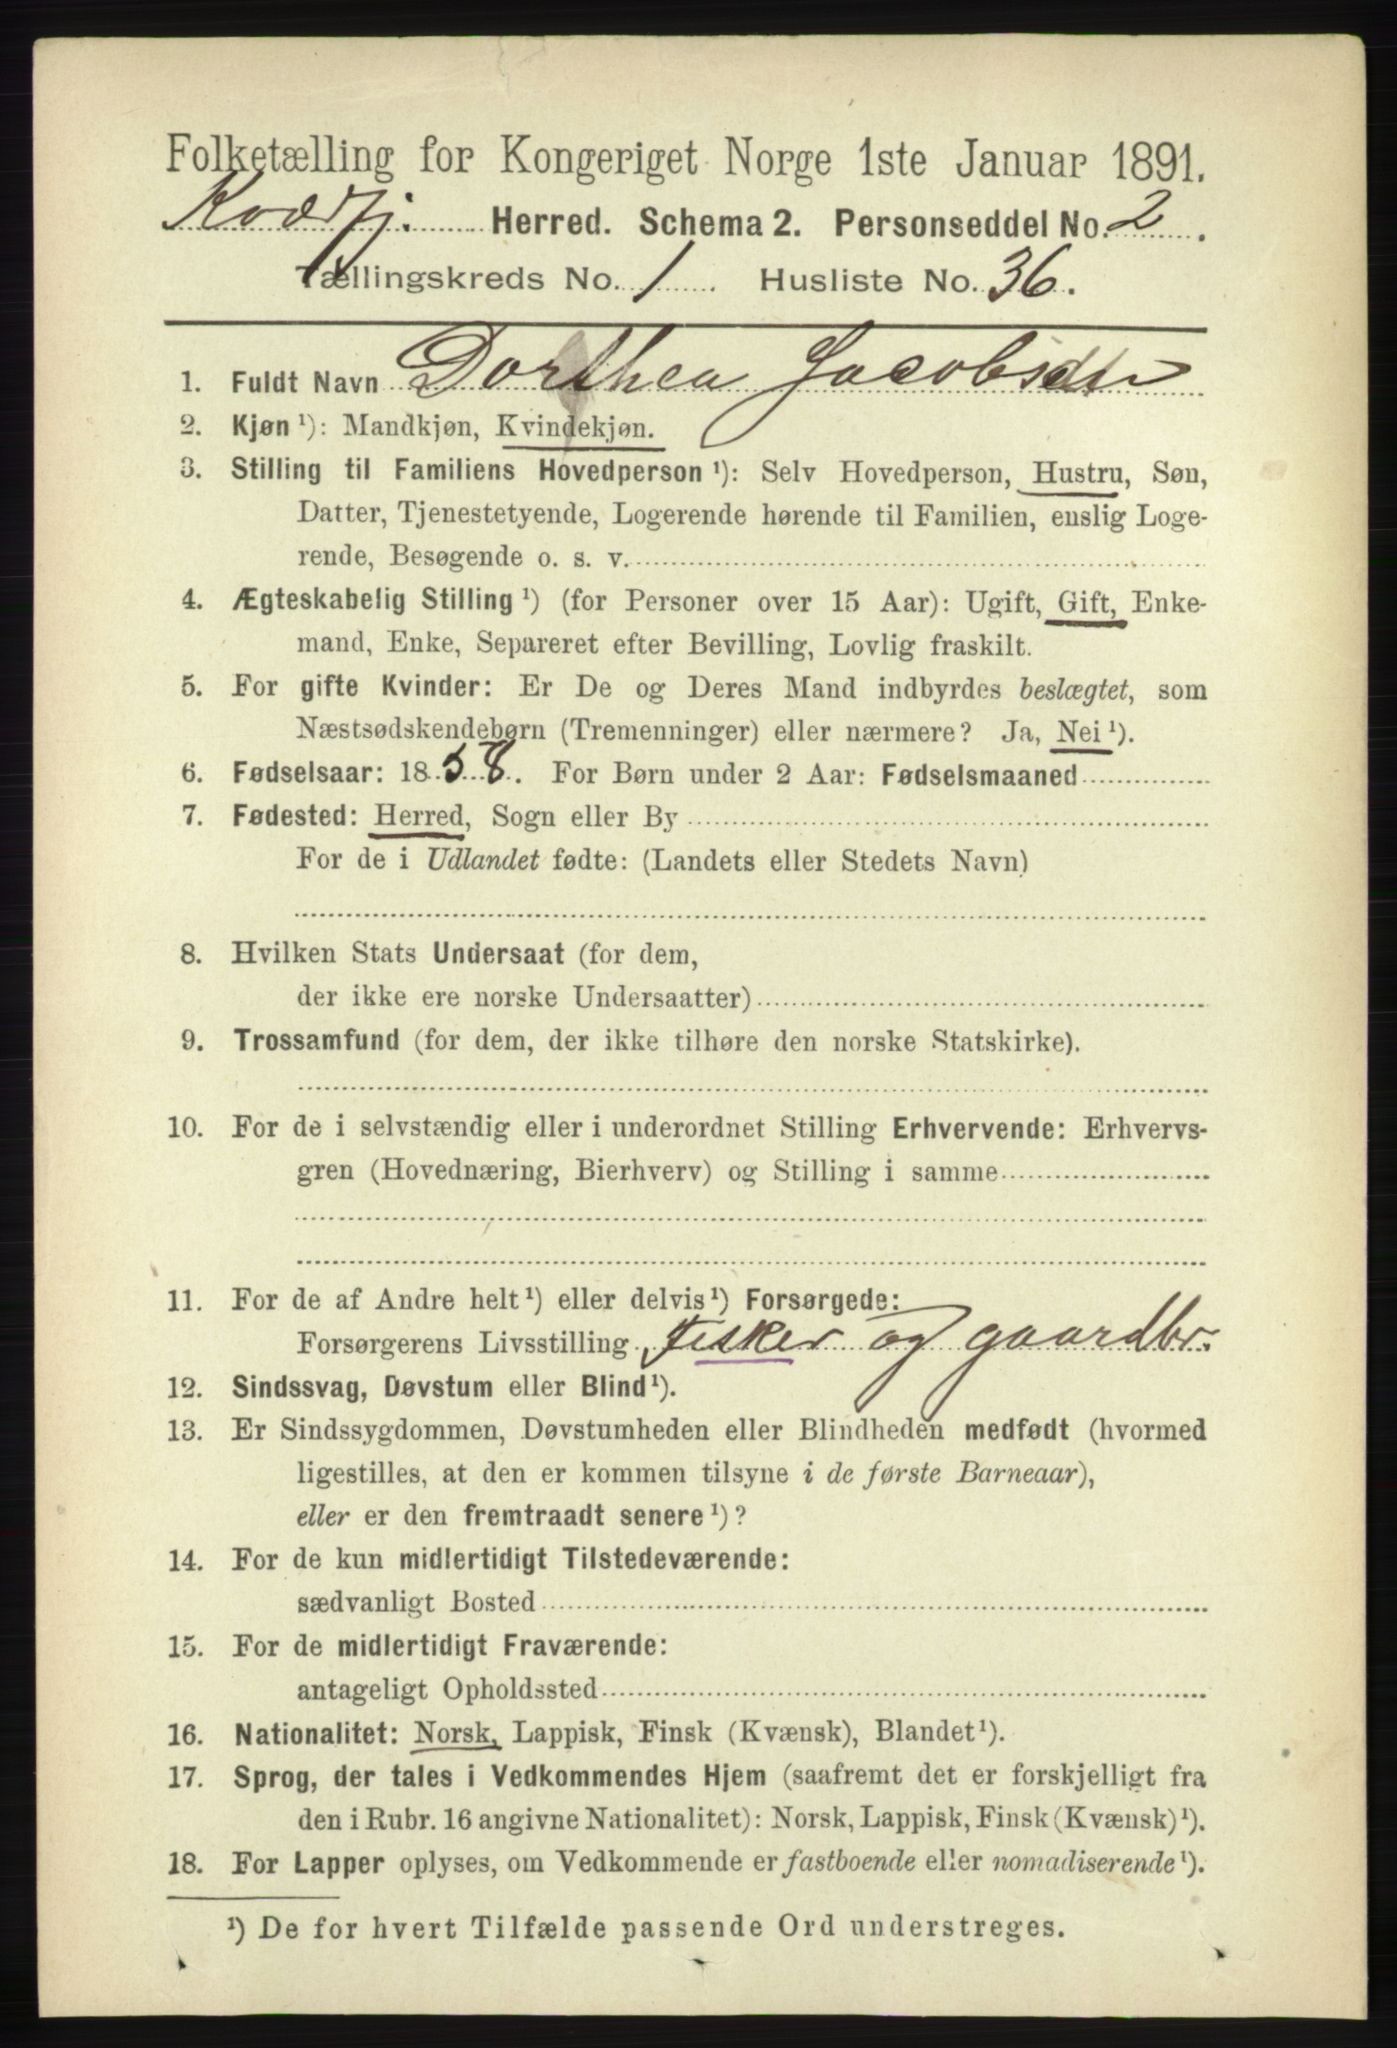 Folketælling for Kongeriget Norge 1ste Januar 1891.
Kvæfj. Herred. Schema 2. Personseddel No. 2.
Tællingskreds No. 1. Husliste No. 36.
1. Fuldt Navn Dorthea Jacobsdtr
2. Kjøn ¹): Mandkjøn, Kvindekjøn.
3. Stilling til Familiens Hovedperson ¹): Selv Hovedperson, Hustru, Søn,
Datter, Tjenestetyende, Logerende hørende til Familien, enslig Loge-
rende, Besøgende o. s. v.
4. Ægteskabelig Stilling ¹) (for Personer over 15 Aar): Ugift, Gift, Enke-
mand, Enke, Separeret efter Bevilling, Lovlig fraskilt.
5. For gifte Kvinder: Er De og Deres Mand indbyrdes beslægtet, som
Næstsødskendebørn (Tremenninger) eller nærmere? Ja, Nei ¹).
6. Fødselsaar: 1858. For Børn under 2 Aar: Fødselsmaaned
7. Fødested: Herred, Sogn eller By
For de i Udlandet fødte: (Landets eller Stedets Navn)
8. Hvilken Stats Undersaat (for dem,
der ikke ere norske Undersaatter)
9. Trossamfund (for dem, der ikke tilhøre den norske Statskirke).
10. For de i selvstændig eller i underordnet Stilling Erhvervende: Erhvervs-
gren (Hovednæring, Bierhverv) og Stilling i samme
11. For de af Andre helt ¹) eller delvis ¹) Forsørgede:
Forsørgerens Livsstilling Fisker og gaardbr.
12. Sindssvag, Døvstum eller Blind ¹).
13. Er Sindssygdommen, Døvstumheden eller Blindheden medfødt (hvormed
ligestilles, at den er kommen tilsyne i de første Barneaar),
eller er den fremtraadt senere ¹)?
14. For de kun midlertidigt Tilstedeværende:
sædvanligt Bosted
15. For de midlertidigt Fraværende:
antageligt Opholdssted
16. Nationalitet: Norsk, Lappisk, Finsk (Kvænsk), Blandet ¹).
17. Sprog, der tales i Vedkommendes Hjem (saafremt det er forskjelligt fra
den i Rubr. 16 angivne Nationalitet): Norsk, Lappisk, Finsk (Kvænsk) ¹).
18. For Lapper oplyses, om Vedkommende er fastboende eller nomadiserende ¹).
¹) De for hvert Tilfælde passende Ord understreges.